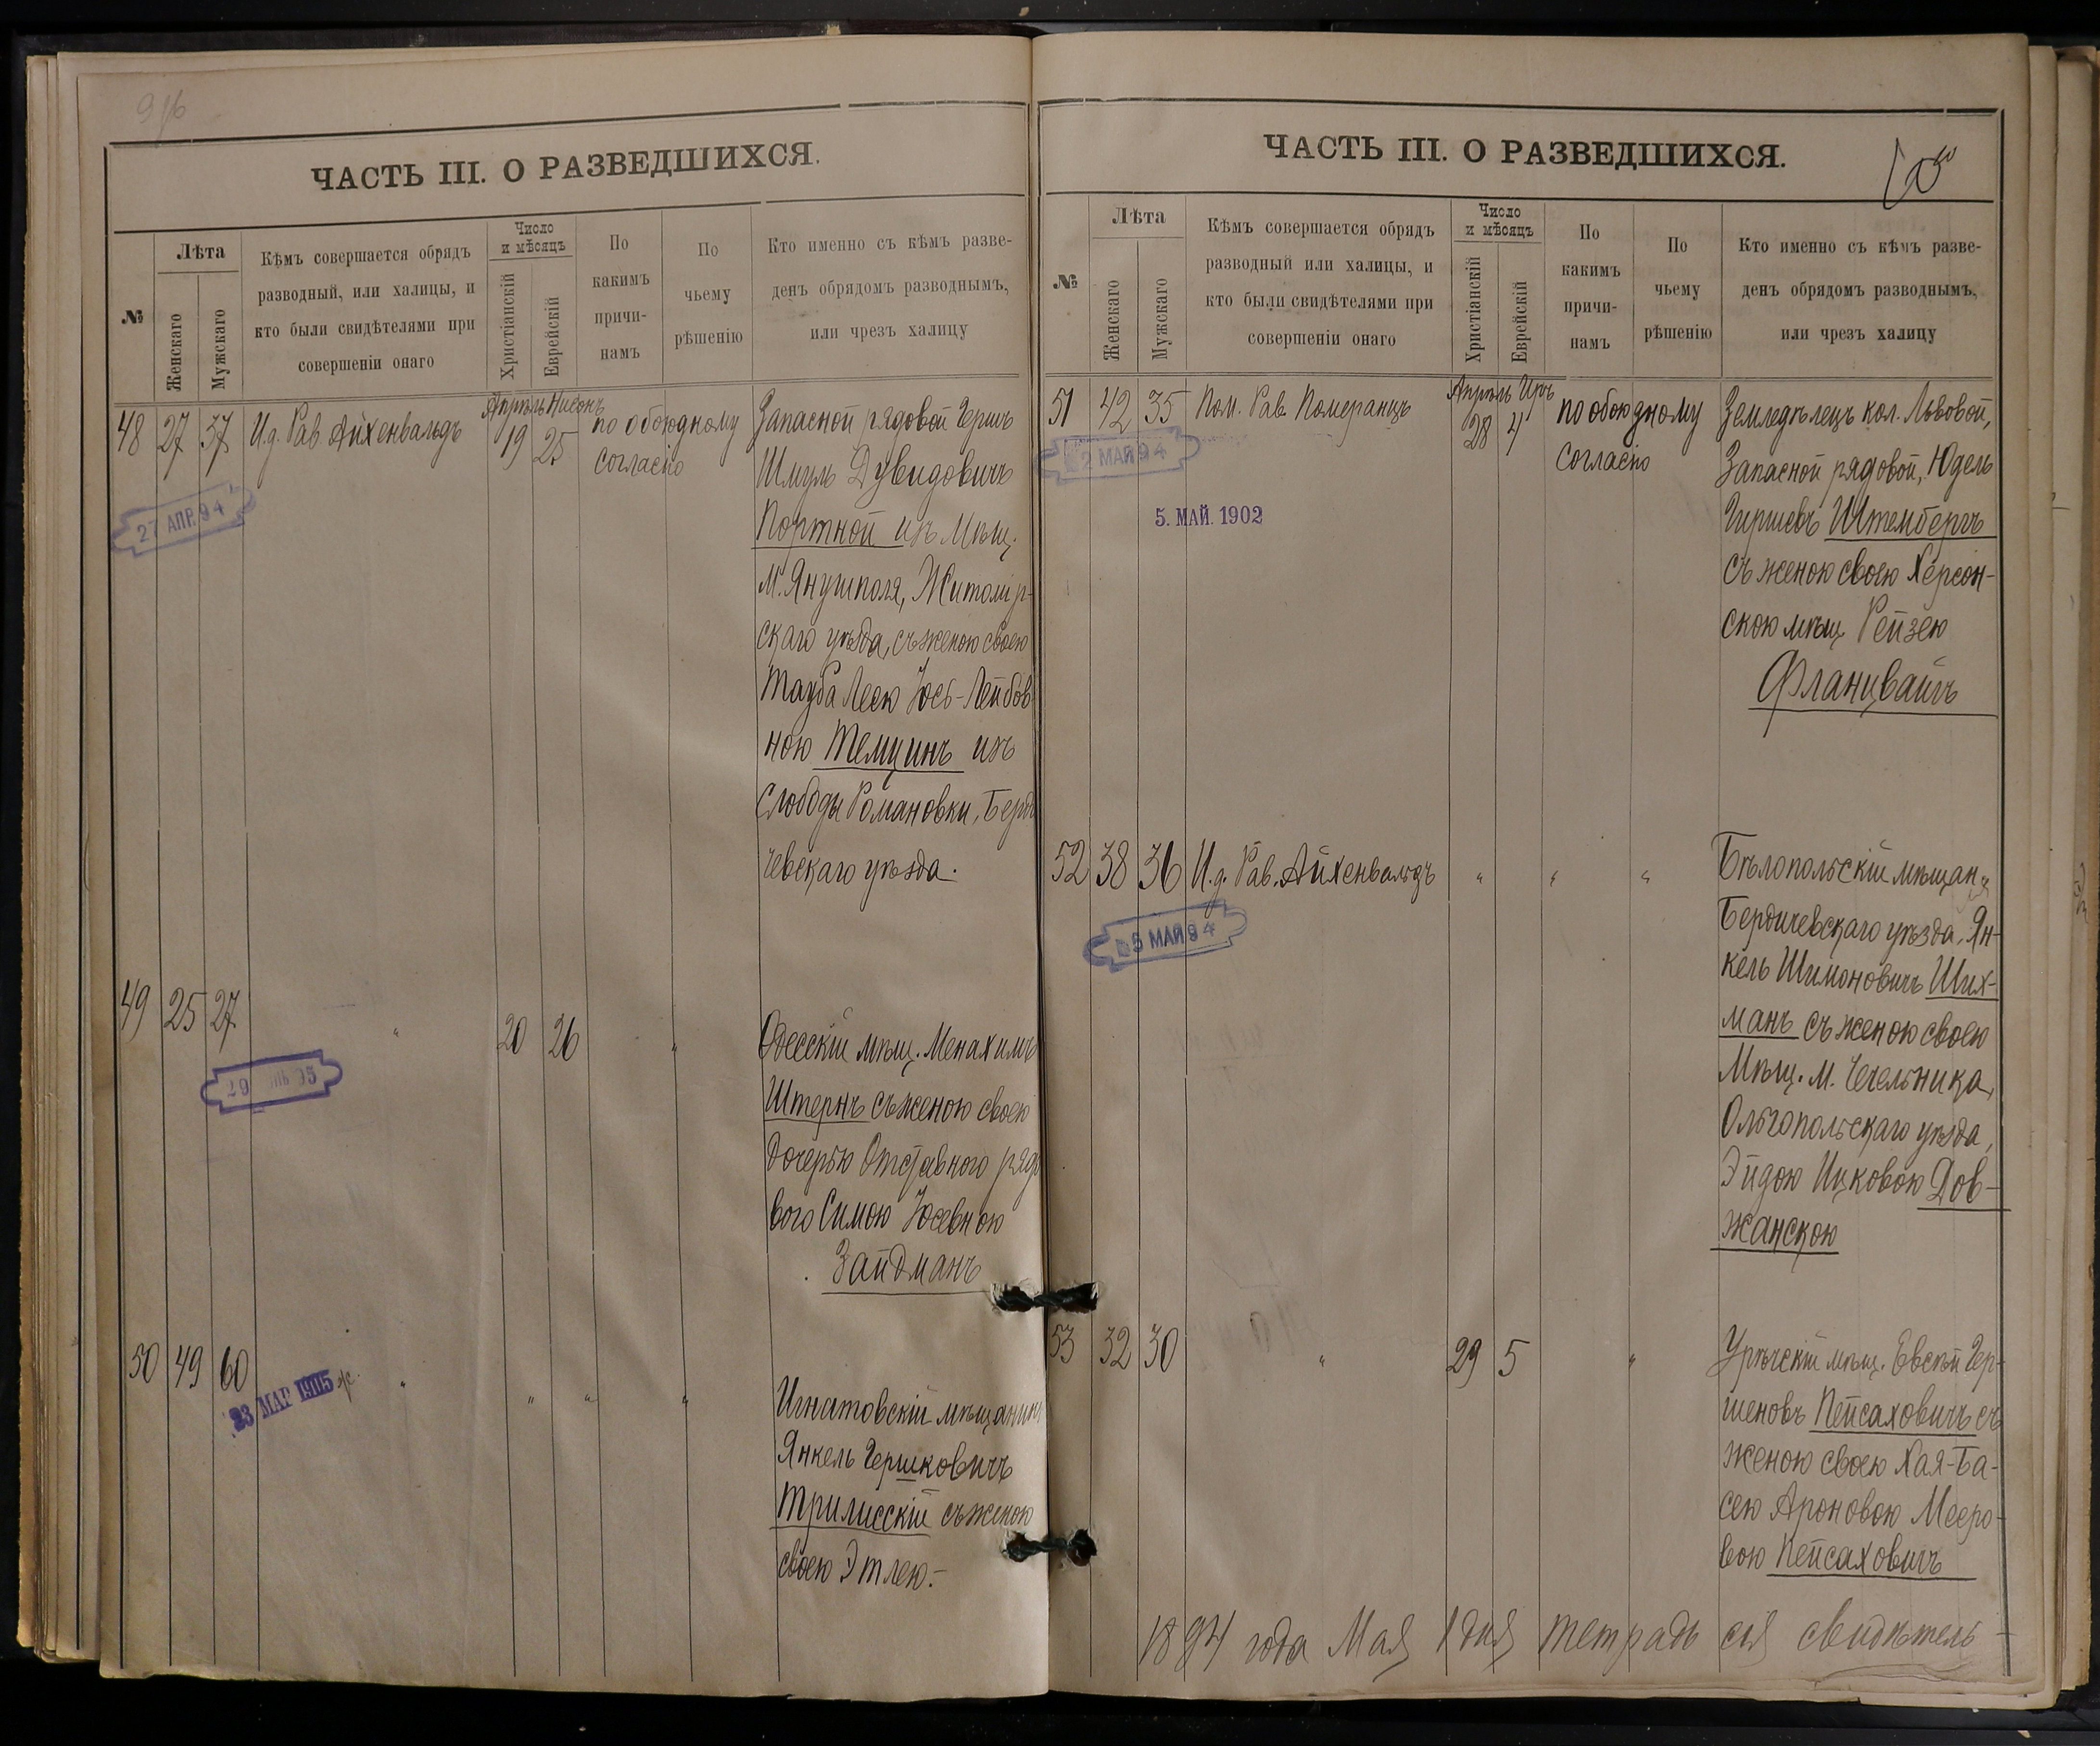 ЧАСТЬ III. О РАЗВЕДШИХСЯ.
№
Лѣта
Женскаго
Мужскаго
Кѣмъ совершается обрядъ
разводный, или халицы, и
кто были свидѣтелями при
совершеніи онаго
Число
и мѣсяцъ
Христіанскій
Еврейскій
По
какимъ
причи-
намъ
По
чьему
рѣшенію
Кто именно съ кѣмъ разве-
денъ обрядомъ разводнымъ,
или чрезъ халицу
48 27 37 И.д. Рав. Айхенвальдъ
Апрѣль Нисонъ
19 25
по обоюдному
согласію
27 АПР. 94
Запасной рядовой Гершъ
Шмуль Дувидовичъ
Портной изъ Мѣщ.
М. Янушполя, Житомір-
скаго уѣзда, съ женою своею
Тауба Леею Іось-Лейбов
ною Темцинъ изъ
Слободы Романовки, Берди
чевскаго уѣзда.
49 25 27 " 20 26 "
Одесскій мѣщ. Менахимъ
Штернъ съ женою своею
дочерью Отставного рядо
вого Симою Іосевною
Зайдманъ
50 49 60 " " " "
23 МАР 1905
Игнатовскій мѣщанинъ
Янкель Гершковичъ
Трилисскій съ женою
своею Этлею.-
ЧАСТЬ III. О РАЗВЕДШИХСЯ.
№
Лѣта
Женскаго
Мужскаго
Кѣмъ совершается обрядъ
разводный или халицы, и
кто были свидѣтелями при
совершеніи онаго
Число
и мѣсяцъ
Христіанскій
Еврейскій
По
какимъ
причи-
намъ
По
чьему
рѣшенію
Кто именно съ кѣмъ разве-
денъ обрядомъ разводнымъ,
или чрезъ халицу
51 42 35 Пом. Рав. Померанцъ
Апрѣль Иръ
28 4
по обоюдному
согласію
2 МАЯ 94
5. МАЙ. 1902
Земледѣлецъ кол. Львовой,
Запасной рядовой, Юдель
Гиршевъ Штембергъ
съ женою своею Херсон-
скою мѣщ. Рейзею
Фланцвайгъ
52 38 36 И.д. Рав. Айхенвальдъ " " "
5 МАЯ 94
Бѣлопольскій мѣщан.
Бердичевскаго уѣзда, Ян-
кель Шимоновичъ Ших-
манъ съ женою своею
Мѣщ. м. Чечельника,
Ольгопольскаго уѣзда,
Эйдою Ицковою Дов-
жанскою
53 32 30 " 29 5 "
мѣщ. Евсѣй Гер-
шеновъ Пейсаховичъ съ
женою своею Хая-Ба-
сею Ароновою Мееро-
вою Пейсаховичъ
1894 года Мая 1 дня тетрадь сія свидѣтель-